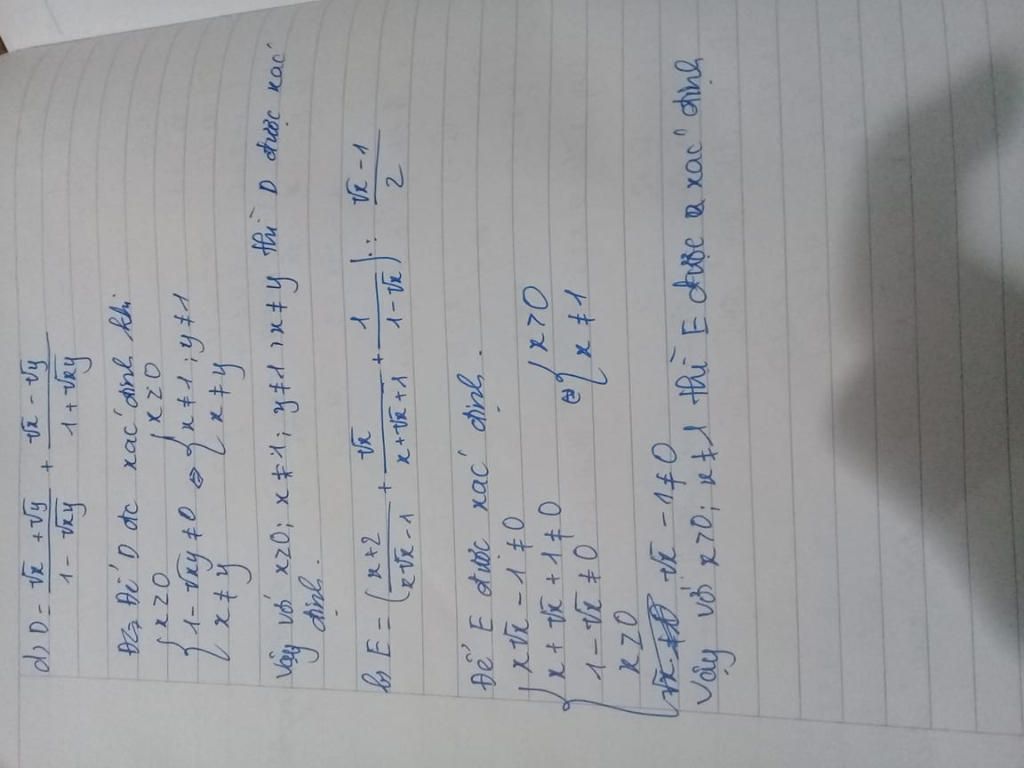 d) D = (√x + √y)/(1 - √xy) + (√x - √y)/(1 + √xy)
Để D đc xác định khi
{ x ≥ 0
{ 1 - √xy ≠ 0
{ x ≠ y
⇔ { x ≥ 0
{ x ≠ 1 ; y ≠ 1
{ x ≠ y
Vậy với x ≥ 0 ; x ≠ 1 ; y ≠ 1 , x ≠ y thì D được xác
định.
E = ( (x + 2)/(x√x - 1) + √x/(x + √x + 1) + 1/(1 - √x) ) : (√x - 1)/2
Để E được xác định.
{ x√x - 1 ≠ 0
{ x + √x + 1 ≠ 0
{ 1 - √x ≠ 0
{ x ≥ 0
{ √x - 1 ≠ 0
⇔ { x ≥ 0
{ x ≠ 1
Vậy với x ≥ 0 ; x ≠ 1 thì E được xác định